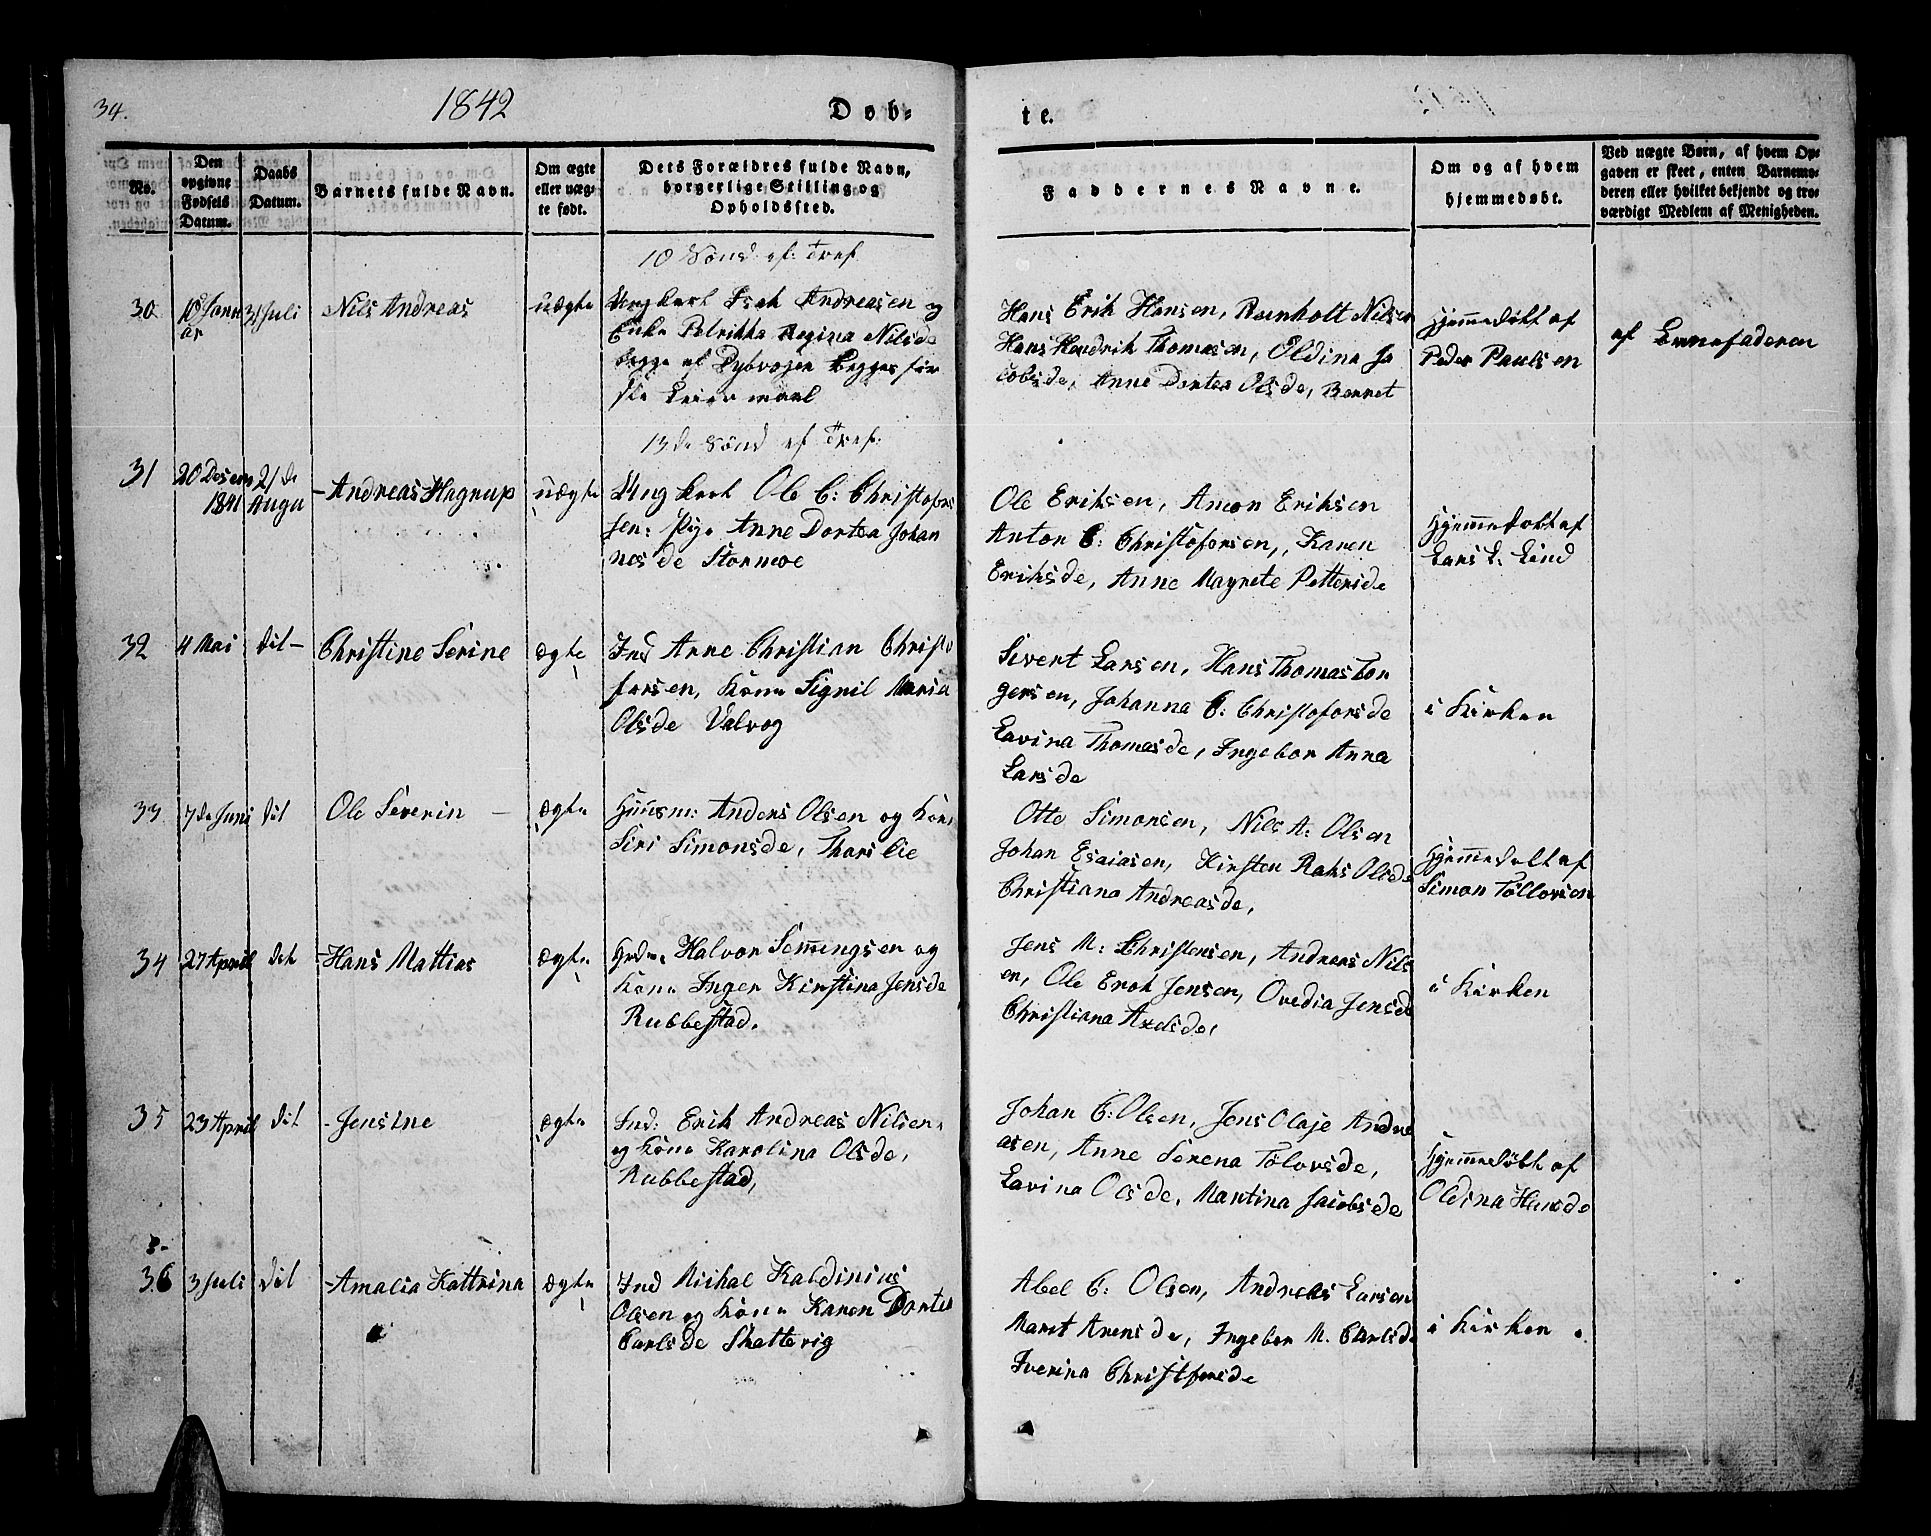 34.
1842
Døb-
te.
No.
Den opgivne Fødsels Datum.
Daabs Datum.
Barnets fulde Navn.
Om ægte eller uægte født.
Dets Forældres fulde Navn, borgerlige Stilling og Opholdssted.
Faddernes Navne.
Om og af hvem hjemmedøbt.
Ved uægte Børn, af hvem Opgaven er skeet, enten Barnemoderen eller hvilket bekjendt og troværdigt Medlem af Menigheden.
10 Sønd. ef: Tref
30 18 Janu 31 Juli Nils Andreas uægte Ungkarl Isak Andreasen og
är
Enke Petrikka Regina Nilsde
begge af Dybvogen begges før
ste Leiermaal
Hans Erik Hansen, Reinholt Nilsen
Hans Hendrik Thomasen, Oldina Ja
cobsde, Anne Dortea Olsde, Bernet
Hjemmedöbt af
Peder Paulsen
af Barnefaderen
13de Sönd ef Tref:
31 20 Desem 21de Andreas Hagrup uægte Ungkarl Ole C: Christofer
1841 Augu
sen: Pige Anne Dortea Johan
nesde Stormoe
Ole Eriksen, Amon Eriksen
Anton C: Christofersen,, Karen
Eriksde, Anne Magrete Pettersde
Hjemmedobt af
Lars L: Lind
32 4 Mai dit - Christine Serine ægte Ind Arne Christian Christo
fersen, Kone Signil Maria
Olsde Valvog
Sivert Larsen, Hans Thomas Tor
gersen, Johanna C: Christofersde
Lavina Thomasde, Ingebor Anna
Larsde
i Kirken
33 7de Juni dit Ole Severin - ægte Huusm: Anders Olsen og Kone
Siri Simonsde, Thorslie
Otte Simonsen, Nils A: Olsen
Johan Esaiasen, Kirsten Raks Olsde
Christiana Andreasde,
Hjemmedobt af
Simon Tollovsen
34 27 April dit - Hans Mattias ægte Halvor Semmingsen og
Kone Inger Kirstina Jensde
Rubbestad.
Jens M: Christensen, Andreas Nils
en, Ole Erok Jensen, Ovedia Jensde
Christiana Axelsde,
i Kirken
35 23 April dit - Jensine ægte Ind: Erik Andreas Nilsen,
og Kone Karolina Olsde,
Rubbestad,
Johan C: Olsen, Jens Olaje Andre
asen, Anne Serena Tolovsde,
Lavina Olsde, Mantina Jacobsde
Hjemmedöbt af
Oldina Hansde
36 3 Juli dit - Amalia Kattrina ægte Ind Michal Kaldinius
Olsen og Kone Karen Dortea
Carlsde Skattvig
Abel C: Olsen, Andreas Larsen
Marit Arensde, Ingebor M. Carlsde
Iverina Christfersde
i Kirken